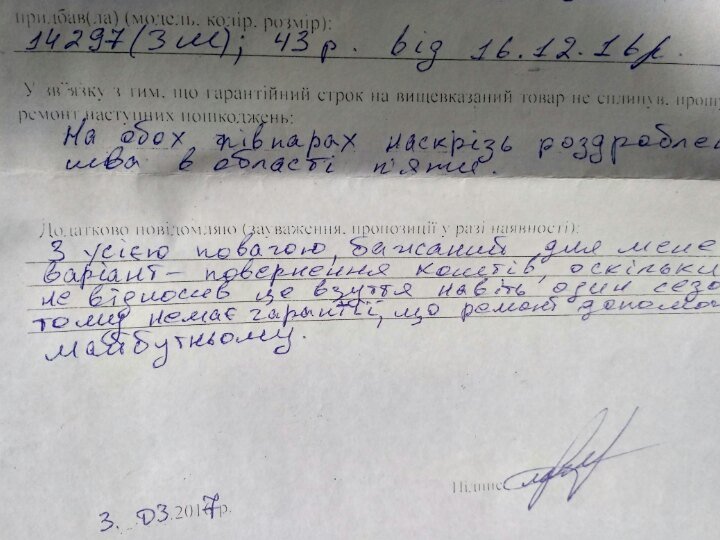 придбав(ла) (модель, колір, розмір):
14297 (3 М); 43 р. від 16.12.16р.
У зв'язку з тим, що гарантійний строк на вищевказаний товар не сплинув, прошу
ремонт наступних пошкоджень:
На обох півпарах наскрізь роздроблен
шва в області п'яти.
Додатково повідомляю (зауваження, пропозиції у разі наявності):
З усією повагою, бажаний для мене
варіант – повернення коштів, оскільки
не відносив це взуття навіть один сезо
тому немає гарантії, що ремонт допомо
майбутньому.
Підпис
3. 03.2017р.